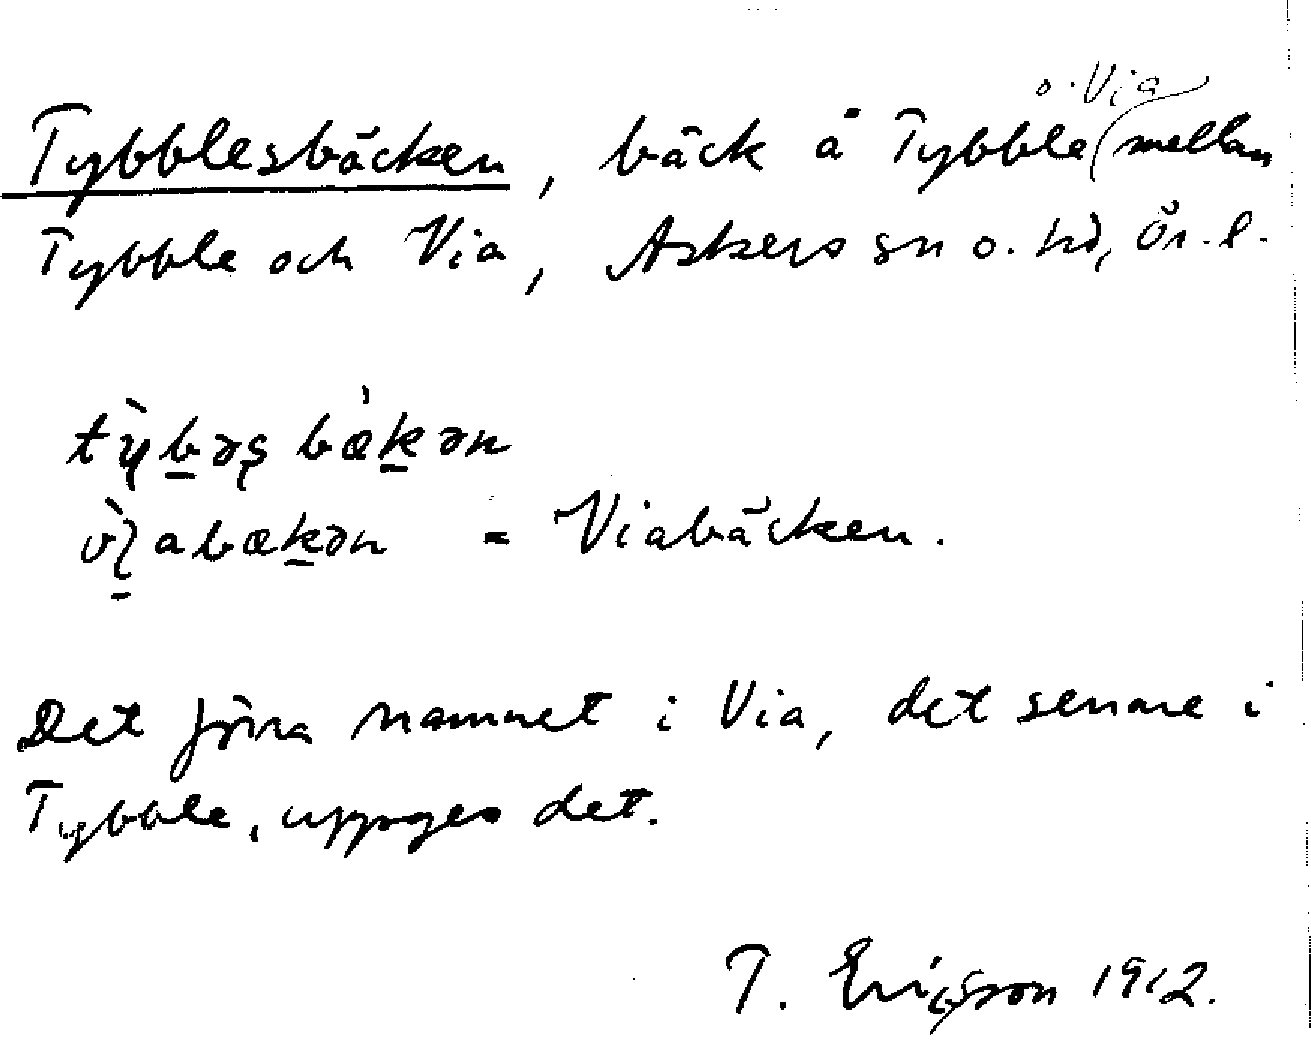 Tybblesbäcken, bäck å Tybble (o. Via mellan
Tybble och Via, Askers sn o. hd, Ör. l.
tỳb̲əş bæ̀k̲ən
abæk̲ən = Viabäcken.
Det förra namnet i Via, det senare i
Tybble, uppges det.
T. Ericsson 1912.